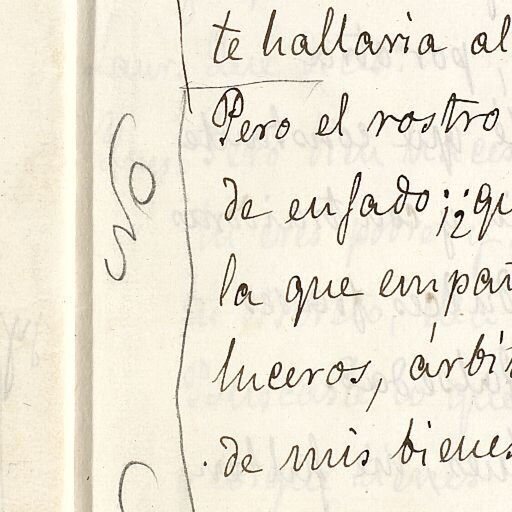 te hallaria al
Pero el rostro
de enfado; ¿qu
la que empañ
luceros, árbit
de mis bienes
No